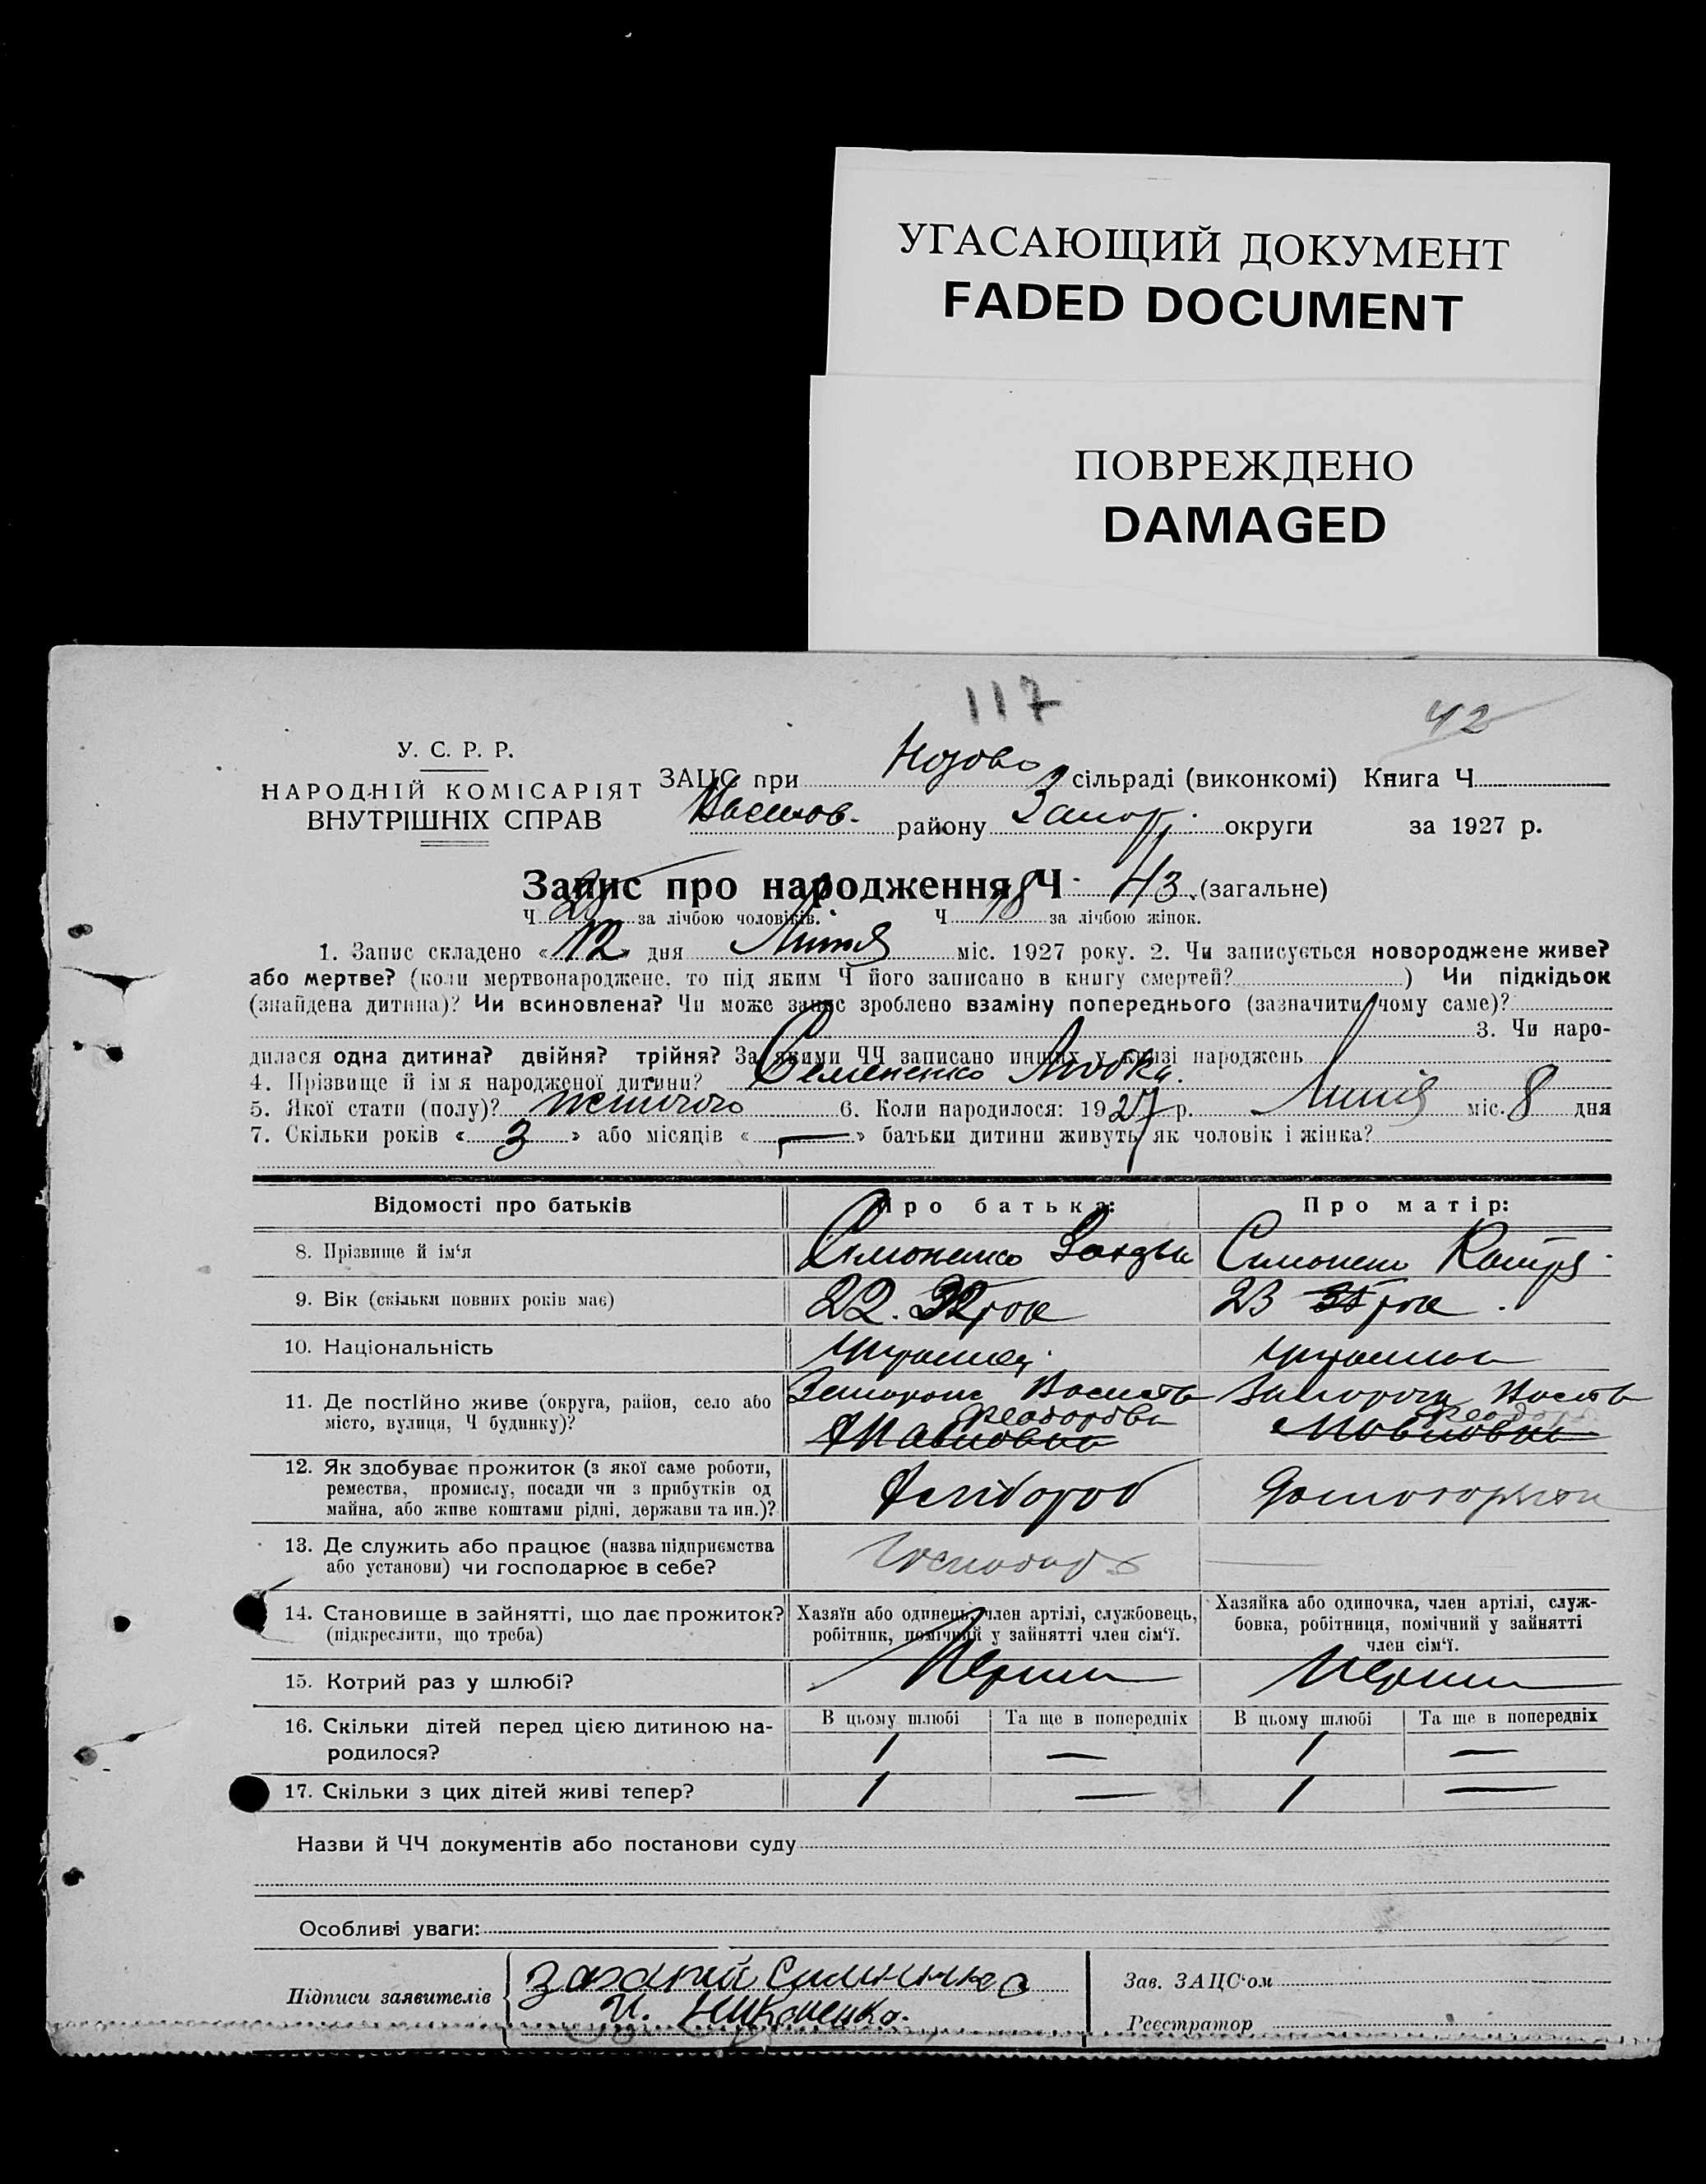 УГАСАЮЩИЙ ДОКУМЕНТ
FADED DOCUMENT
ПОВРЕЖДЕНО
DAMAGED
117
42
У. С. Р. Р.
НАРОДНІЙ КОМІСАРІЯТ
ВНУТРІШНІХ СПРАВ
ЗАЦС при сільраді (виконкомі) Книга Ч
району Запор. округи за 1927 р.
Запис про народження Ч 43 (загальне)
Ч 25 за лічбою чоловіків. Ч 18 за лічбою жінок.
1. Запис складено «12» дня Липня міс. 1927 року. 2. Чи записується новороджене живе?
або мертве? (коли мертвонароджене, то під яким Ч його записано в книгу смертей? ) Чи підкідьок
(знайдена дитина)? Чи всиновлена? Чи може запис зроблено взаміну попереднього (зазначити чому саме)?
3. Чи наро-
дилася одна дитина? двійня? трійня? За якими ЧЧ записано инших у книзі народжень
4. Прізвище й ім я народженої дитини?
5. Якої стати (полу)? жіночого 6. Коли народилося: 1927 р. Липня міс. 8 дня
7. Скільки років «3» або місяців «—» батьки дитини живуть як чоловік і жінка?
Відомості про батьків Про батька: Про матір:
8. Прізвище й ім‘я Симоненко
9. Вік (скільки повних років має) 22. 32 рок 23 35 рок.
10. Національність
11. Де постійно живе (округа, район, село або
місто, вулиця, Ч будинку)?
12. Як здобуває прожиток (з якої саме роботи,
ремества, промислу, посади чи з прибутків од
майна, або живе коштами рідні, держави та ин.)? Хлібороб
13. Де служить або працює (назва підприємства
або установи) чи господарює в себе? Господарь
14. Становище в зайнятті, що дає прожиток?
(підкреслити, що треба)
Хазяїн або одинець, член артілі, службовець,
робітник, помічний у зайнятті член сім‘ї.
Хазяйка або одиночка, член артілі, служ-
бовка, робітниця, помічний у зайнятті
член сім‘ї.
15. Котрий раз у шлюбі? Перши Перши
16. Скільки дітей перед цією дитиною на-
родилося?
В цьому шлюбі Та ще в попередніх В цьому шлюбі Та ще в попередніх
1 — 1 —
17. Скільки з цих дітей живі тепер? 1 — 1 —
Назви й ЧЧ документів або постанови суду
Особливі уваги:
Підписи заявителів
И. Никоненко.
Зав. ЗАЦС‘ом
Реєстратор